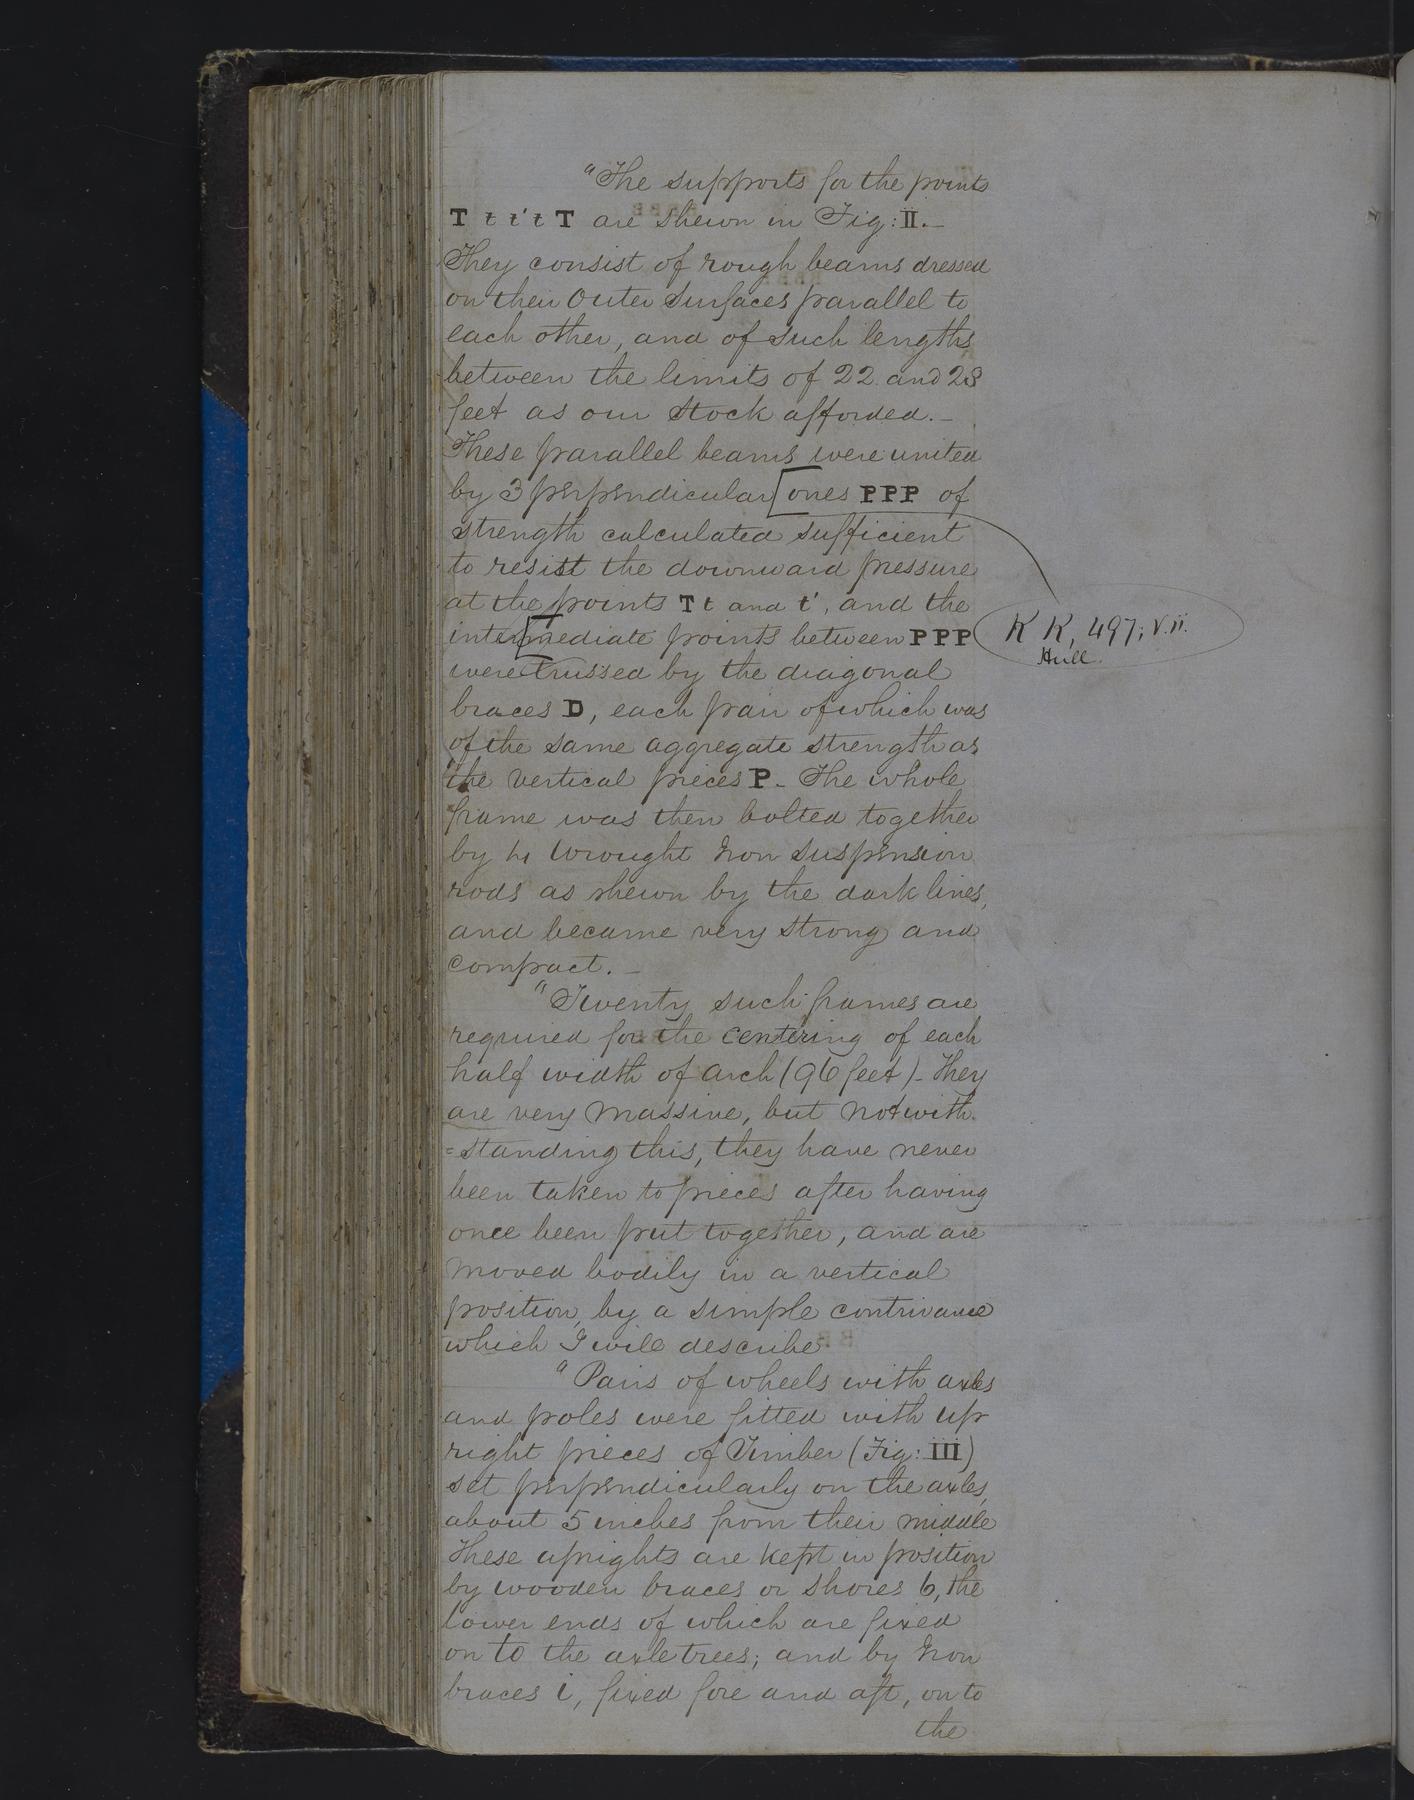 "The supports for the points
T t t' t T are shewn in Fig: II. _
They consist of rough beams dressed
on their Outer Surfaces parallel to
each other, and of such lengths
between the limits of 22 and 28
feet as our stock afforded. _
These parallel beams were united
by 3 perpendicular [ones PPP of
strength calculated sufficient
to resist the downward pressure
at the points T t and t', and the
intermediate points between PPP
were trussed by the diagonal
braces D, each pair of which was
of the same aggregate strength as
the vertical pieces P_ The whole
frame was then bolted together
by 4 Wrought Iron suspension
rods as shewn by the dark lines,
and became very strong and
compact. _
"Twenty such frames are
required for the centering of each
half width of arch (96 feet)_ They
are very massive, but notwith
=standing this, they have never
been taken to pieces after having
once been put together, and are
moved bodily in a vertical
position, by a simple contrivance
which I will describe
"Pairs of wheels with axles
and poles were fitted with up
right pieces of Timber (Fig: III)
set perpendicularly on the axles,
about 5 inches from their middle
These uprights are kept in position
by wooden braces or shores b, the
lower ends of which are fixed
on to the axletrees; and by Iron
braces i, fixed fore and aft, on to
the
K K, 497; V. ii.
Hull.